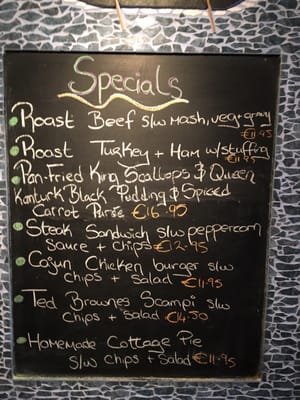 Specials
Roast Beef s/w mash, veg + gravy
€11.95
Roast Turkey + Ham w/stuffing
€11.95
Pan-Fried King Scallops & Queen
Kanturk Black Pudding & Spiced
Carrot Purée €16.95
Steak Sandwich s/w peppercorn
Sauce + Chips €12.95
Cajun Chicken burger s/w
chips + Salad €11.95
Ted Brownes Scampi s/w
chips + salad €14.50
Homemade Cottage Pie
s/w chips + Salad €11.95